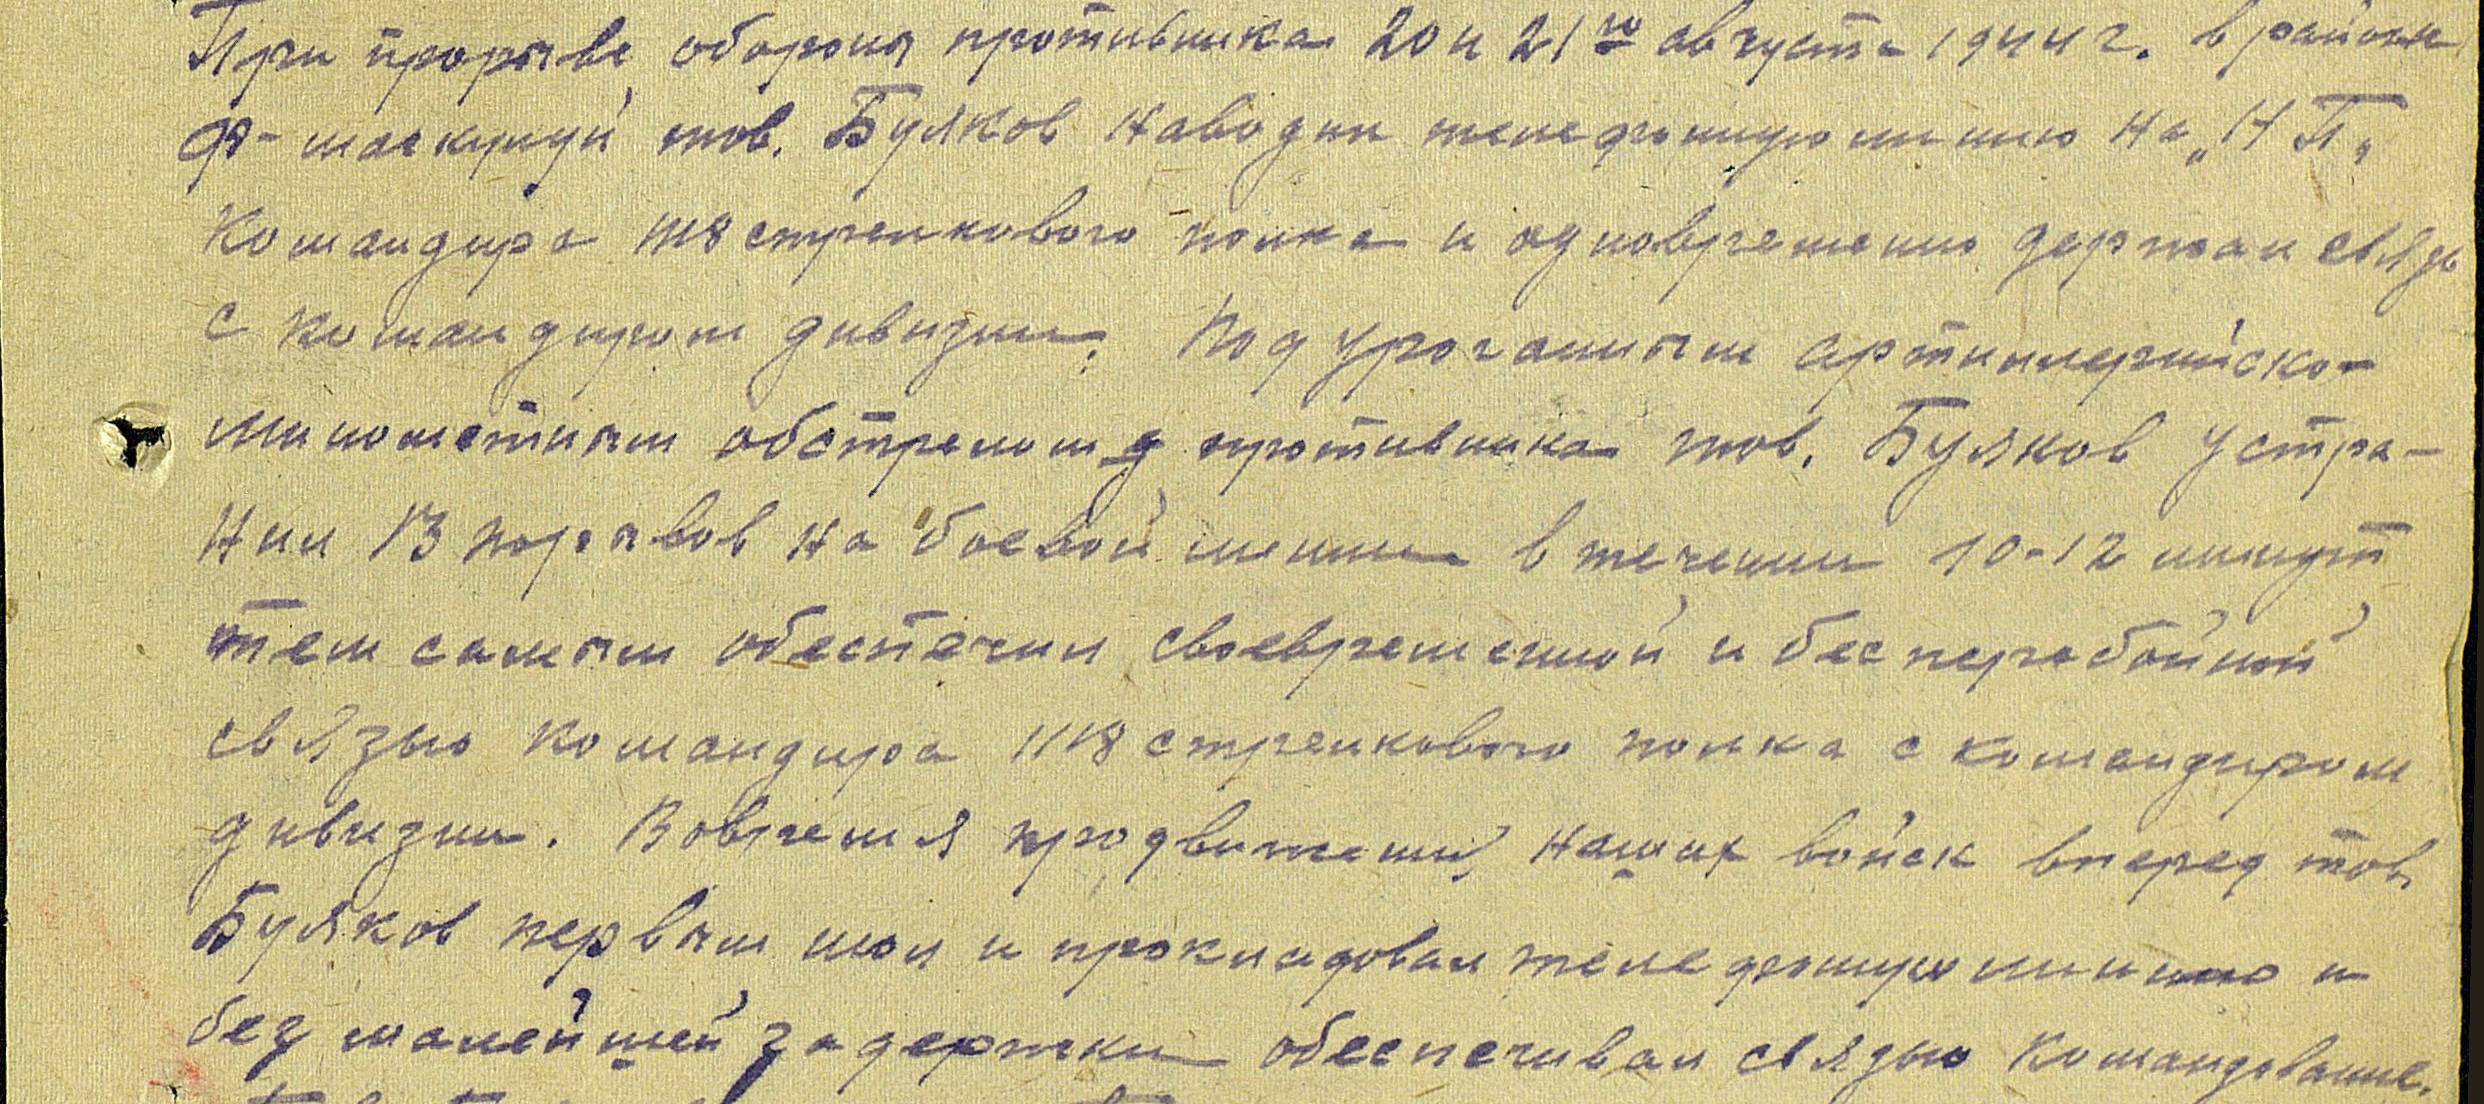 При прорыве обороны противника 20 и 21го августа 1944 г. в районе
тов. Буяков наводил телефонную линию на "НП"
Командира 1118 стрелкового полка и одновременно держал связь
с командиром дивизии. Под ураганным артиллерийско-
минометным обстрелом противника тов. Буяков устра-
нил 13 порывов на боевой линии в течении 10-12 минут
тем самым обеспечил своевременной и бесперебойной
связью командира 1118 стрелкового полка с командиром
дивизии. Вовремя продвижений наших войск вперед тов.
Буяков первым шол и прокладовал телефонную линию и
без малейшей задержки обеспечивал связью командование.